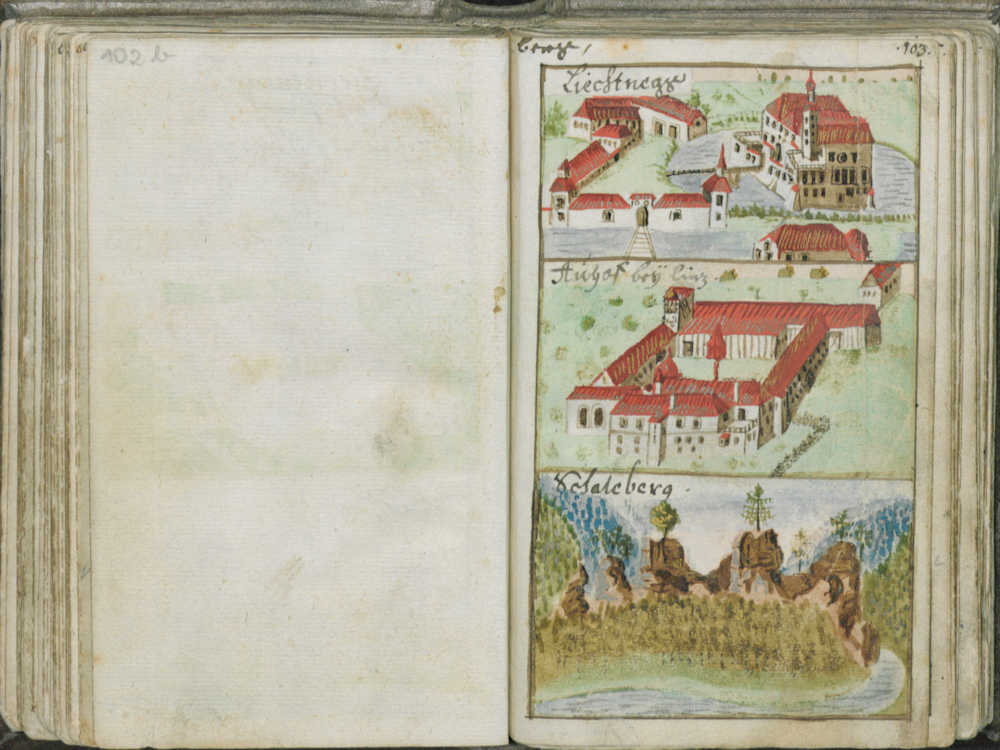 102 b
berge,
.103.
Liechtnegg
Auhof beÿ linz.
Schaleberg.